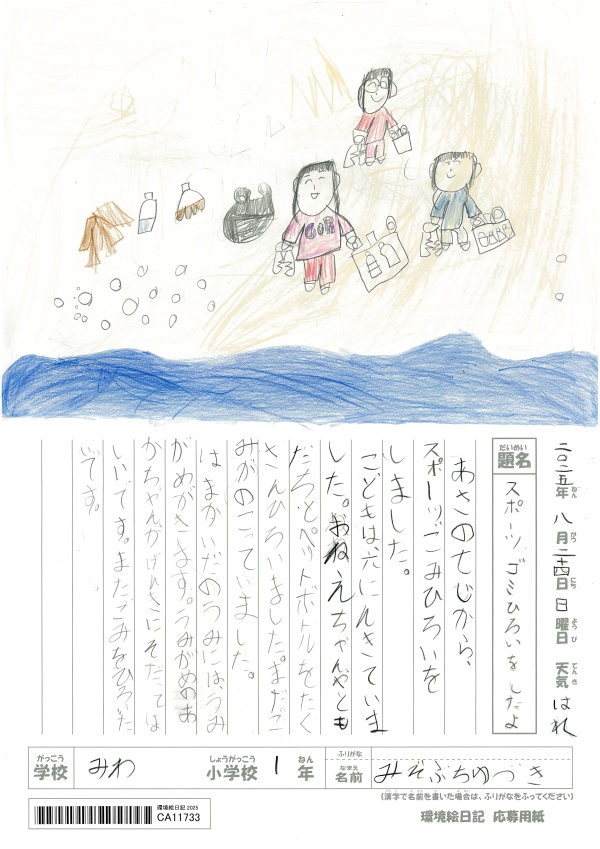 GOR
二〇二五年ねん 八月がつ二十四日にち 日曜日ようび 天気てんき はれ
だいめい
題名
スポーツゴミひろいをしたよ
あさの七じから、
スポーツごみひろいを
しました。
こどもは、六にんきていま
した。おねえちゃんやとも
だちとペットボトルをたく
さんひろいました。まだご
みがのこっていました。
はまかいだのうみには、うみ
がめがきます。うみがめのあ
かちゃんがげんきにそだってほ
しいです。またごみをひろいた
いです。
がっこう
学校
みわ
しょうがっこう
小学校
1
ねん
年
ふりがな
なまえ
名前
みぞぶちゆづき
(漢字で名前を書いた場合は、ふりがなをふってください)
環境絵日記 2025
CA11733
環境絵日記 応募用紙